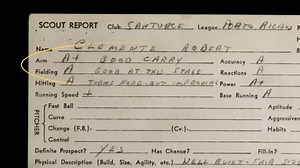 SCOUT REPORT Club SANTURCE League PORTO RICAN
Name CLEMENTE ROBERT
Arm A+ GOOD CARRY Accuracy A
Fielding A GOOD AT THIS STAGE Reactions A
Hitting A TURNS HEAD BUT IMPROVING Power A+
Running Speed + Base Running A
PITCHER
Fast Ball Aptitude
Curve Aggressive
Change (F.B.) (Cv.) Habits
Control
Definite Prospect? YES Has Chance? Fill-In?
Physical Description (Build, Size, Agility, etc.) WELL BUILT - FAIR SIZE